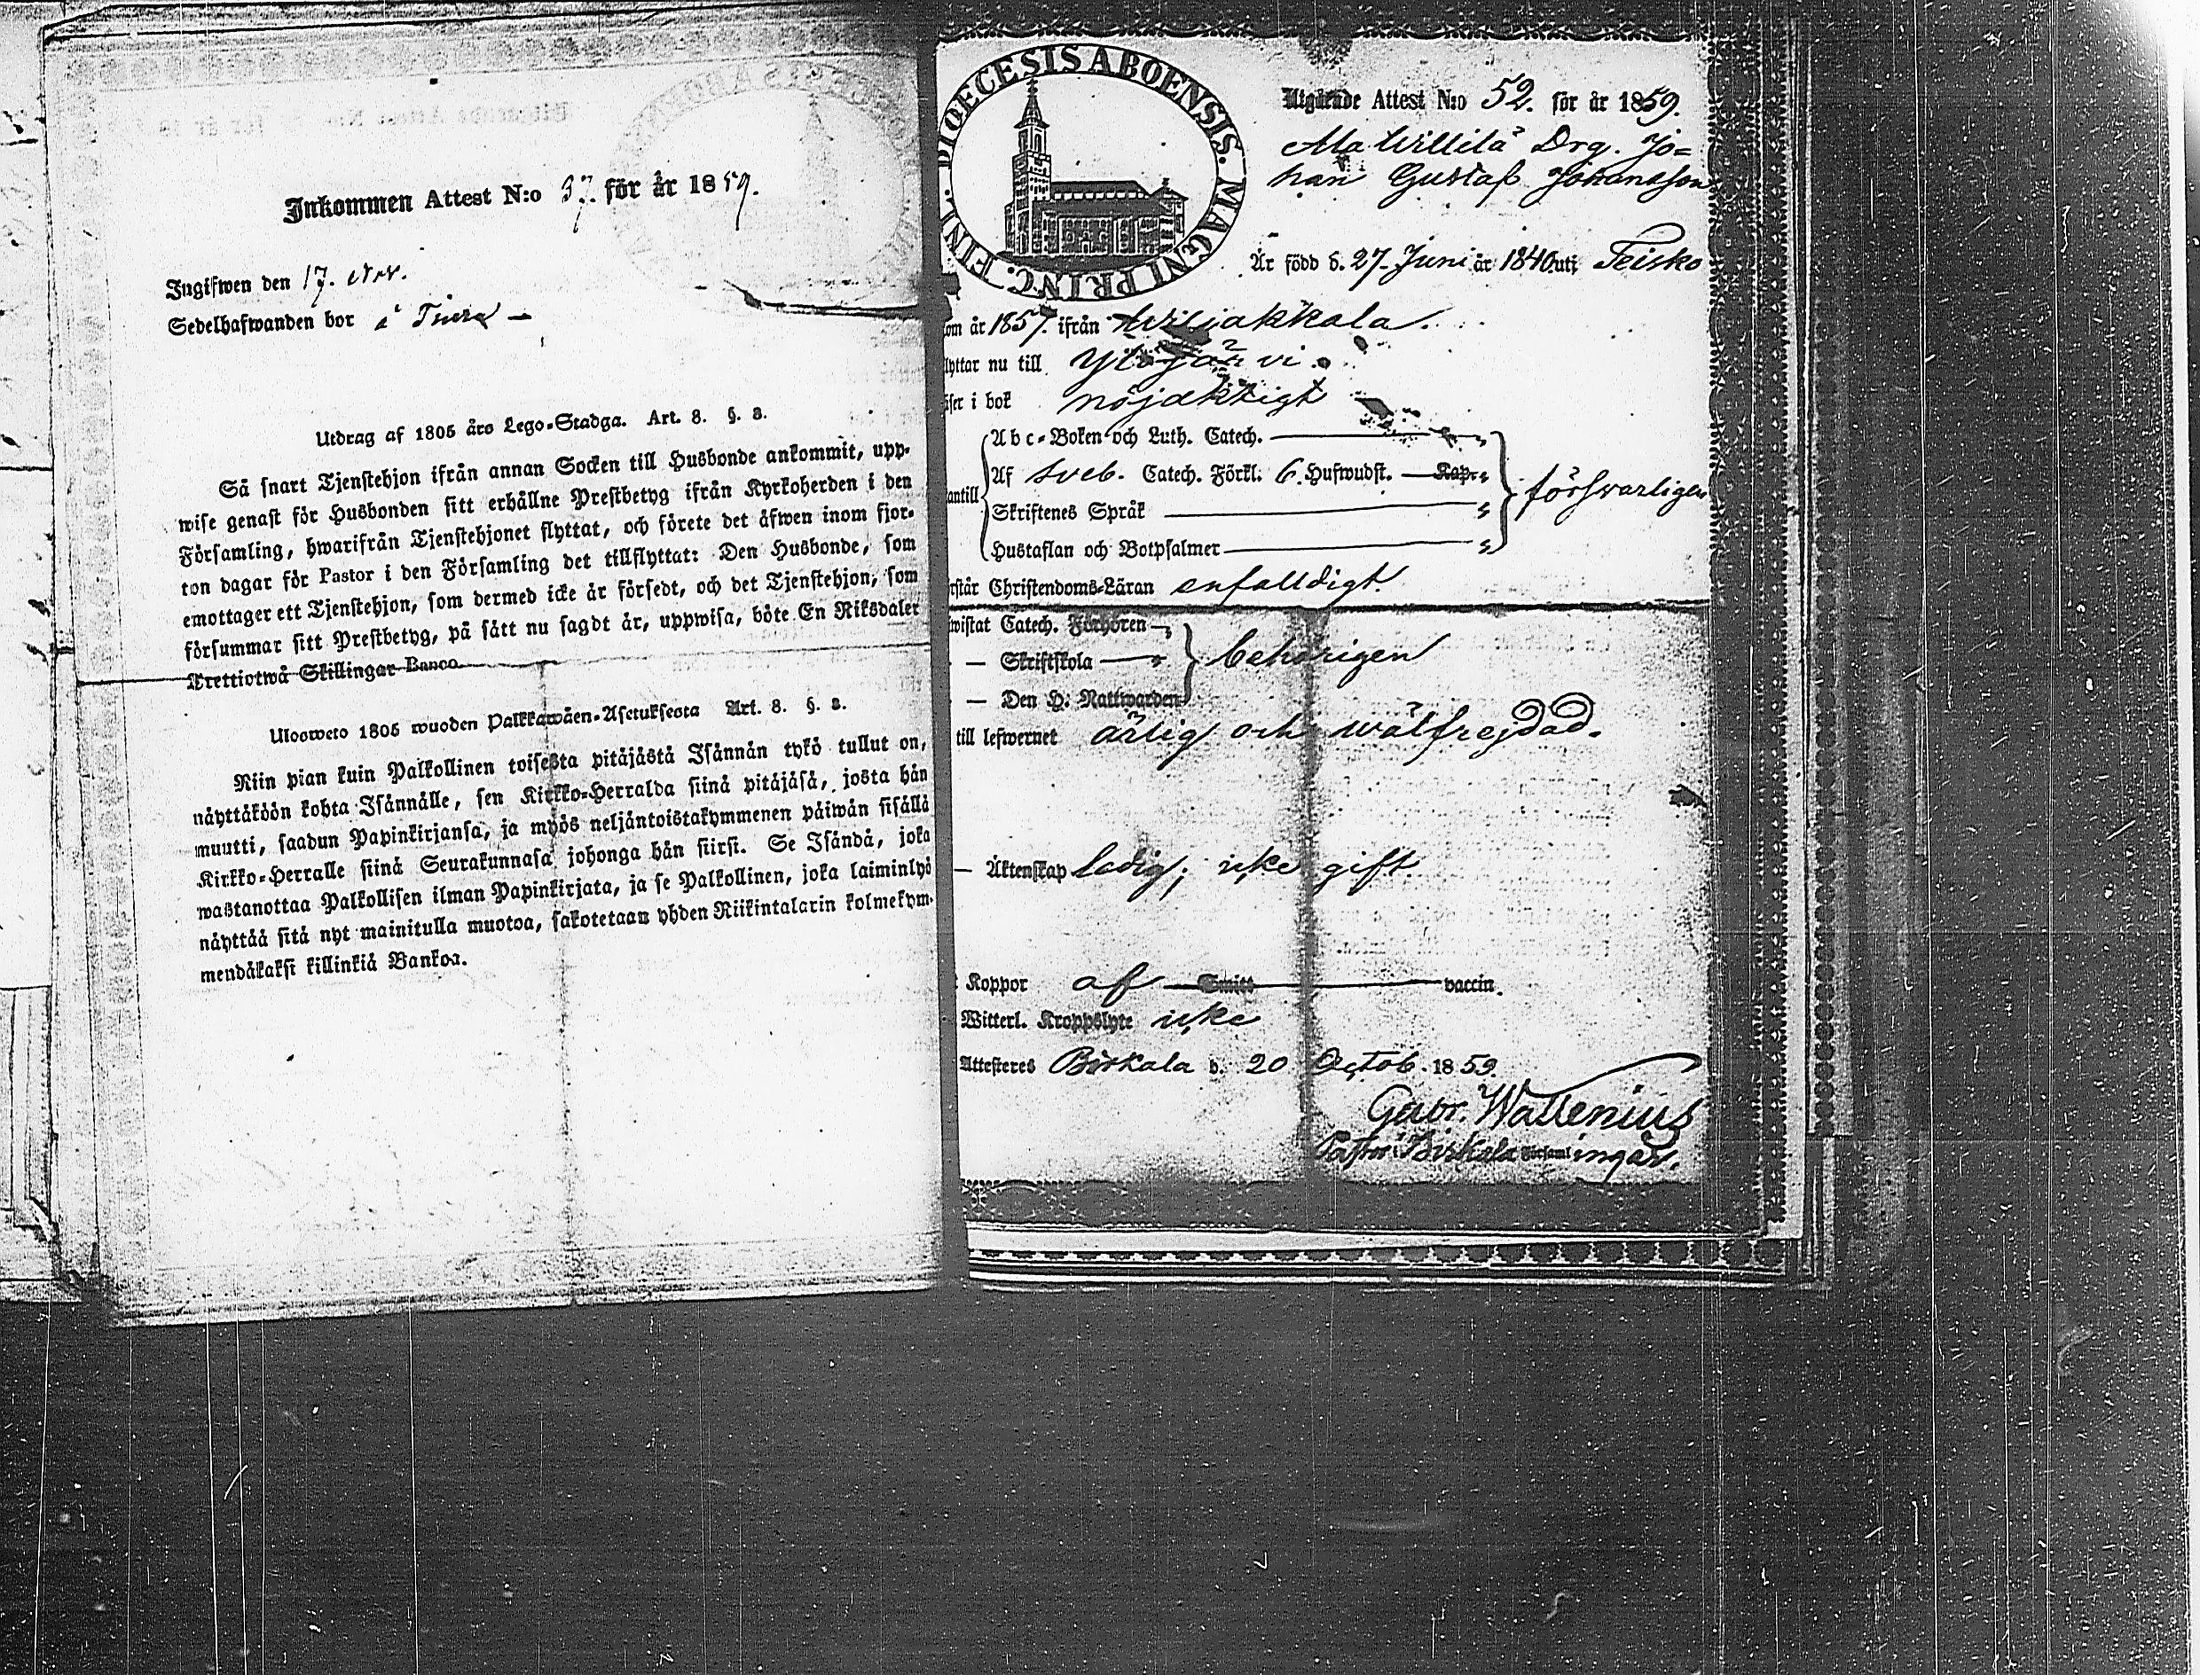 Inkommen Attest N:o 37. för år 1859.
Ingifwen den 17. Nov.
Sedelhafwanden bor i
Utdrag af 1805 års Lego-Stadga. Art. 8. §. 3.
Så snart Tjenstehjon ifrån annan Socken till Husbonde ankommit, upp-
wise genast för Husbonden sitt erhållne Prestbetyg ifrån Kyrkoherden i den
Församling, hwarifrån Tjenstehjonet flyttat, och förete det äfwen inom fjor-
ton dagar för Pastor i den Församling det tillflyttat: Den Husbonde, som
emottager ett Tjenstehjon, som dermed icke är försedt, och det Tjenstehjon, som
försummar sitt Prestbetyg, på sätt nu sagdt är, uppwisa, böte En Riksdaler
Trettiotwå Skillingar Banco.
Uloosweto 1805 wuoden Palkkawäen-Asetuksesta Art. 8. §. 3.
Niin pian kuin Palkollinen toisesta pitäjästä Isännän tykö tullut on,
näyttäköön kohta Isännälle, sen Kirkko-Herralda siinä pitäjäsä, josta hän
muutti, saadun Papinkirjansa, ja myös neljäntoistakymmenen päiwän sisällä
Kirkko-Herralle siinä Seurakunnasa johonga hän siirsi. Se Isändä, joka
wastanottaa Palkollisen ilman Papinkirjata, ja se Palkollinen, joka laiminlyö
näyttää sitä nyt mainitulla muotoa, sakotetaan yhden Riikintalarin kolmekym-
mendäkaksi killinkiä Bankoa.
DIOECESIS ABOENSIS. MAGNI PRINC. FINL.
Utgående Attest N:o 52. för år 1859.
Ala Willilä Drg. Jo=
han Gustaf Johansson
Är född d. 27 Juni år 1840 uti Teisko
om år 1857. ifrån Wiljakkala.
lyttar nu till Ylöjärvi.
äser i bok nöjaktigt
Abc-Boken och Luth. Catech. — "
Af Sveb. Catech. Förkl. 6. Hufwudst. — Kap. "
antill
Skriftenes Språk — "
försvarligen
Hustaflan och Botpsalmer — "
rstår Christendoms-Läran enfalldigt.
wistat Catech. Förhören — "
— Skriftskola — "
behörigen
— Den H. Nattwarden
till lefwernet ärlig och wälfrejdad.
— Äktenskap ledig; icke gift.
Koppor af — Smitt — vaccin.
Witterl. Kroppslyte icke
Attesteres Birkala d. 20 Octob. 1859.
Gabr. Wallenius
Pastor i Birkala Församlingar.